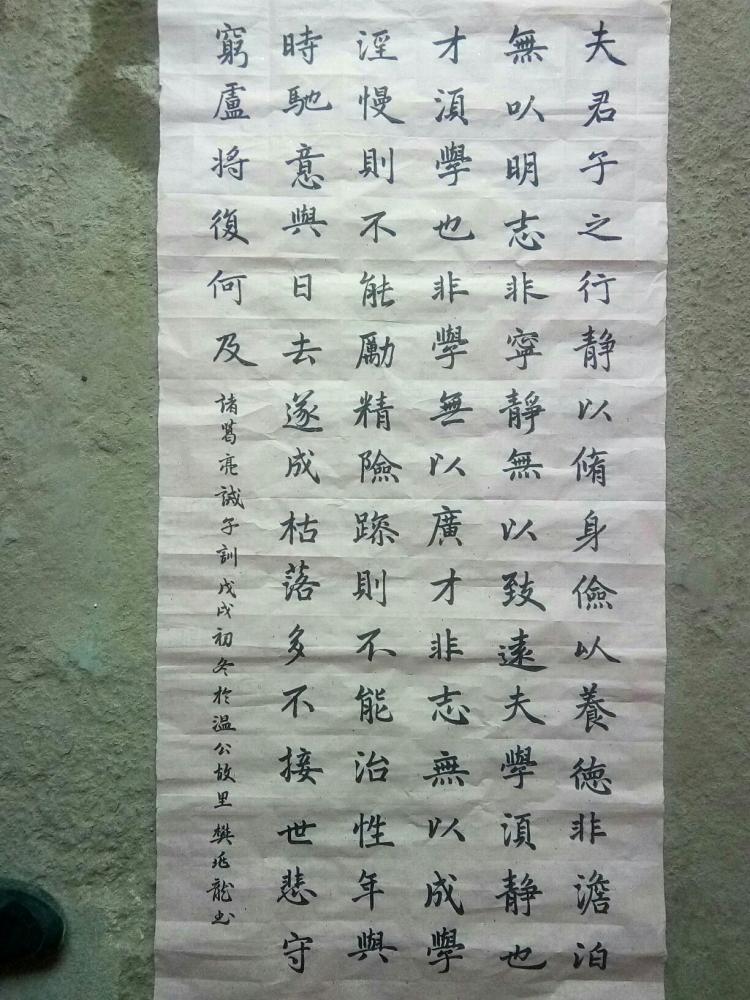 夫君子之行静以脩身儉以養德非澹泊
無以明志非寧靜無以致遠夫學須静也
才須學也非學無以廣才非志無以成學
淫慢則不能勵精險躁則不能治性年與
時馳意與日去遂成枯落多不接世悲守
窮盧将復何及
諸葛亮誡子訓戊戌初冬於温公故里樊兆龍书